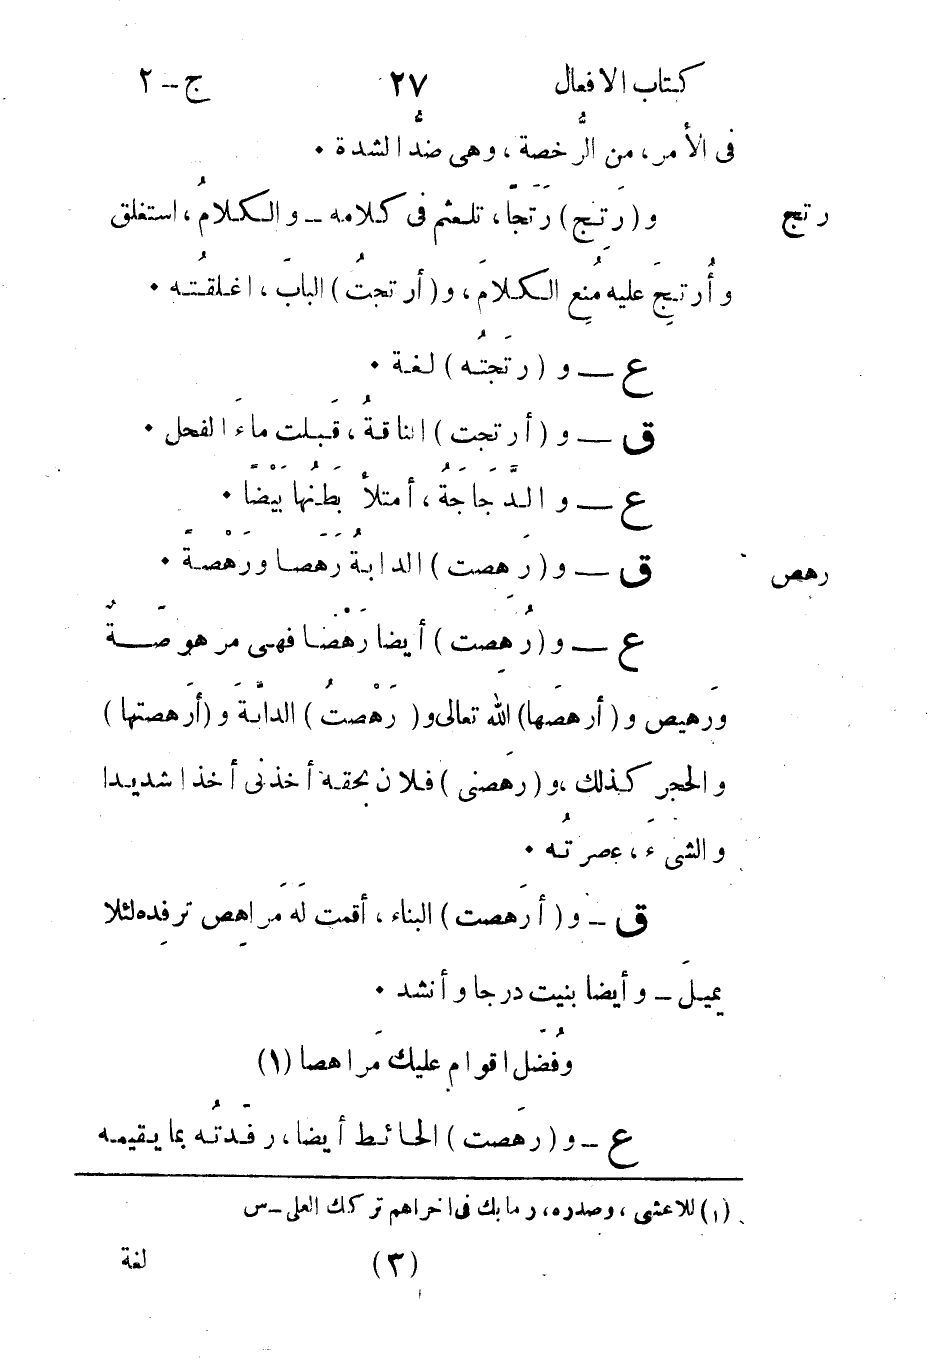 كتاب الافعال ٢٧ ج – ٢
فى الأمر، من الرُّخصة، وهى ضدُّ الشدة •
رتج و (رَتِج) رَتَجًا، تلعثم فى كلامه – والكلامُ، استغلق
وأُرتِجَ عليه مُنِع الكلامَ، و (أرتجتُ) البابَ، اغلقتُه •
ع – و (رَتجتُه) لغة •
ق – و (أرتجت) الناقةُ، قَبلت ماءَ الفحل •
ع – و الدَّجَاجَةُ، أمتلأ بَطنُها بَيْضًا •
رهص ق – و (رَهصت) الدابةُ رَهَصا ورَهْصةً •
ع – و (رُهِصت) أيضا رَهْصًا فهى مرهوصَةٌ
ورَهيص و (أرهصَها) الله تعالى و (رَهْصتُ) الدابَّةَ و (أرَهصتها)
والحجر كذلك، و (رهَصنى) فلان بحقه أخذنى أخذا شديدا
والشىءَ، عصرتُه •
ق – و (أرَهصت) البناء، أقمت لَه مَراهِص ترفِده لئلا
يميلَ – و أيضا بنيت درجا وأنشد •
وفُضّل اقوام عليك مَراهصا (١)
ع – و (رهَصت) الحائط أيضا، رفَدتُه بما يقيمه
(١) للاعشى، وصدره، رمابك فى اخراهم تركك العلى – س
(٣) لغة